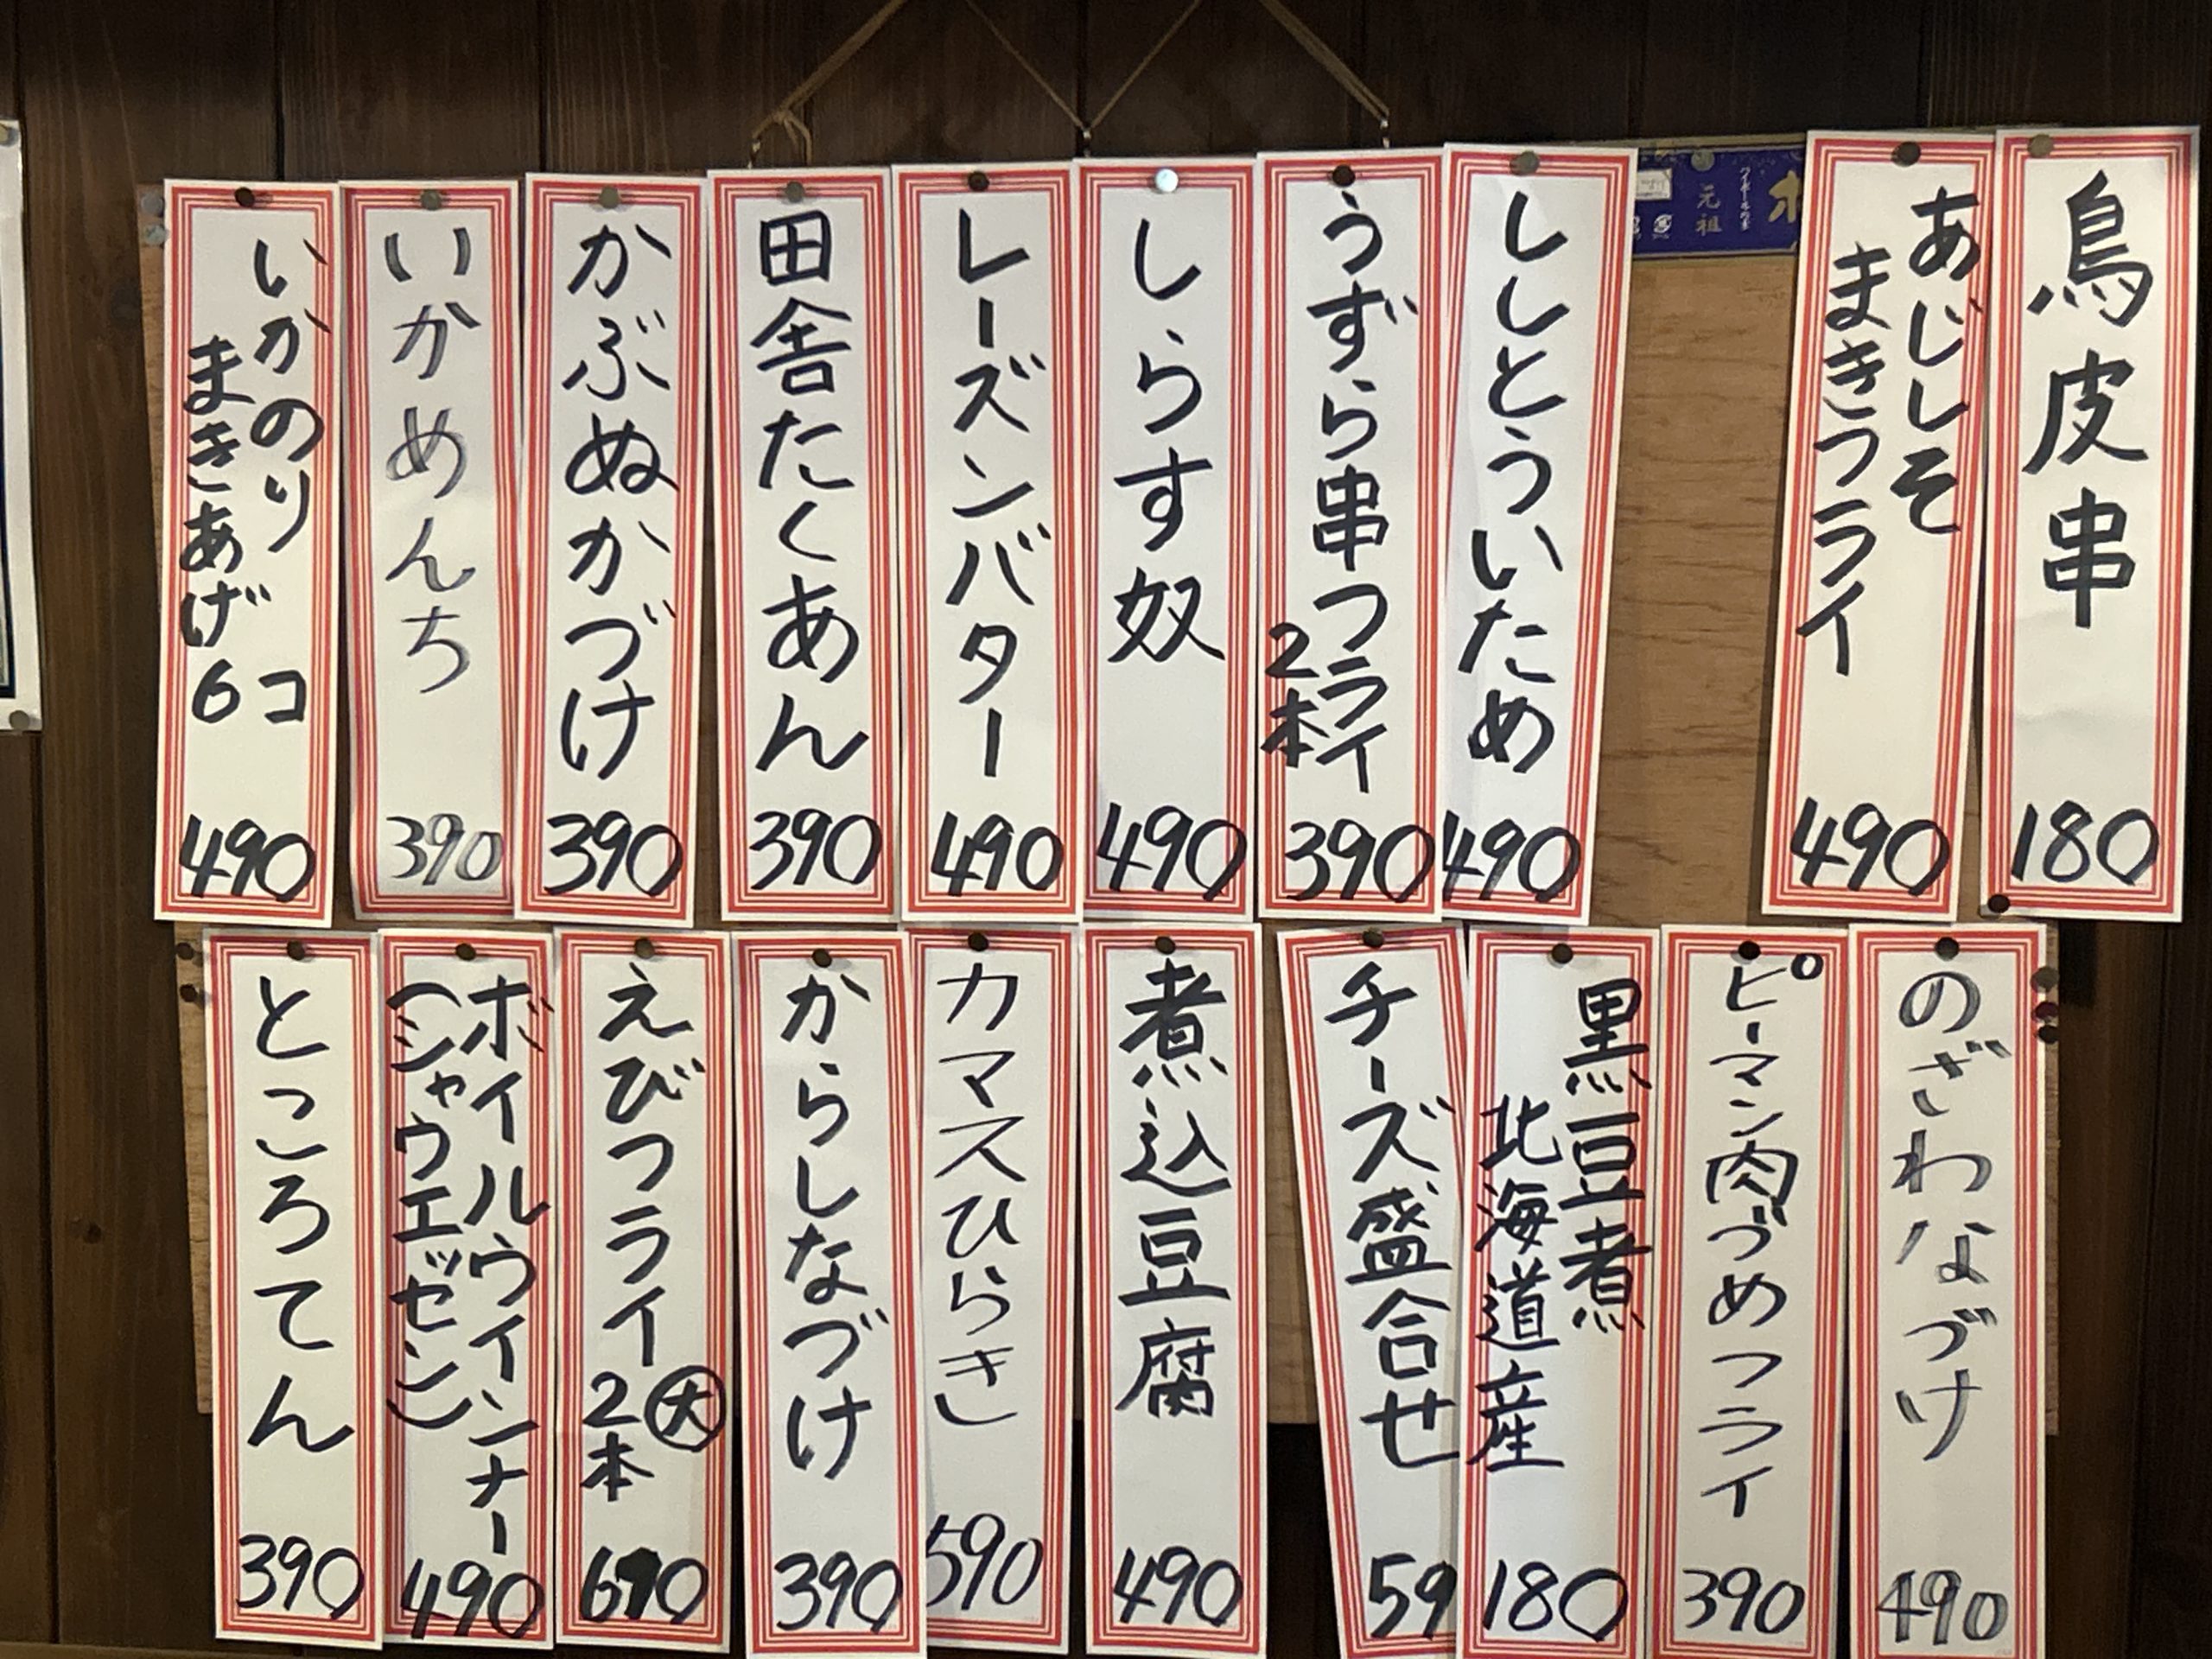 鳥皮串
180
あじしそ
まきフライ
490
元祖
ししとういため
490
うずら串フライ
2本
390
しらす奴
490
レーズンバター
490
田舎たくあん
390
かぶぬかづけ
390
いかめんち
390
いかのり
まきあげ
6コ
490
のざわなづけ
490
ピーマン肉づめフライ
390
黒豆煮
北海道産
180
チーズ盛合せ
59
煮込豆腐
490
カマスひらき
590
からしなづけ
390
えびフライ
大
2本
690
ボイルウインナー
(シャウエッセン)
490
ところてん
390